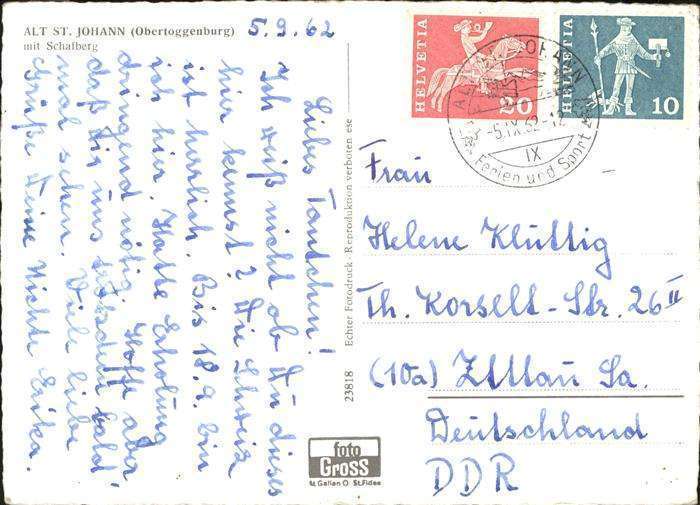 ALT ST. JOHANN (Obertoggenburg)
mit Schafberg
5.9.62
Liebes Tantchen!
Ich weiß nicht ob Du dieses
hier kennst? Die Schweiz
ist herrlich. Bis 18.9. bin
ich hier. Hatte Erholung
dringend nötig. Hoffe aber
daß wir uns trotzdem bald
mal sehen. Viele liebe
Grüße Deine Nichte Erika.
23818 Echter Fotodruck - Reproduktion verboten
foto
Gross
St. Gallen O St. Fiden
HELVETIA
20
HELVETIA
10
ALT ST. JOHANN
-5.IX.62-12
IX
Ferien und Sport
Frau
Helene Kluttig
Th. Korselt-Str. 26 II
(10a) Zittau Sa.
Deutschland
DDR